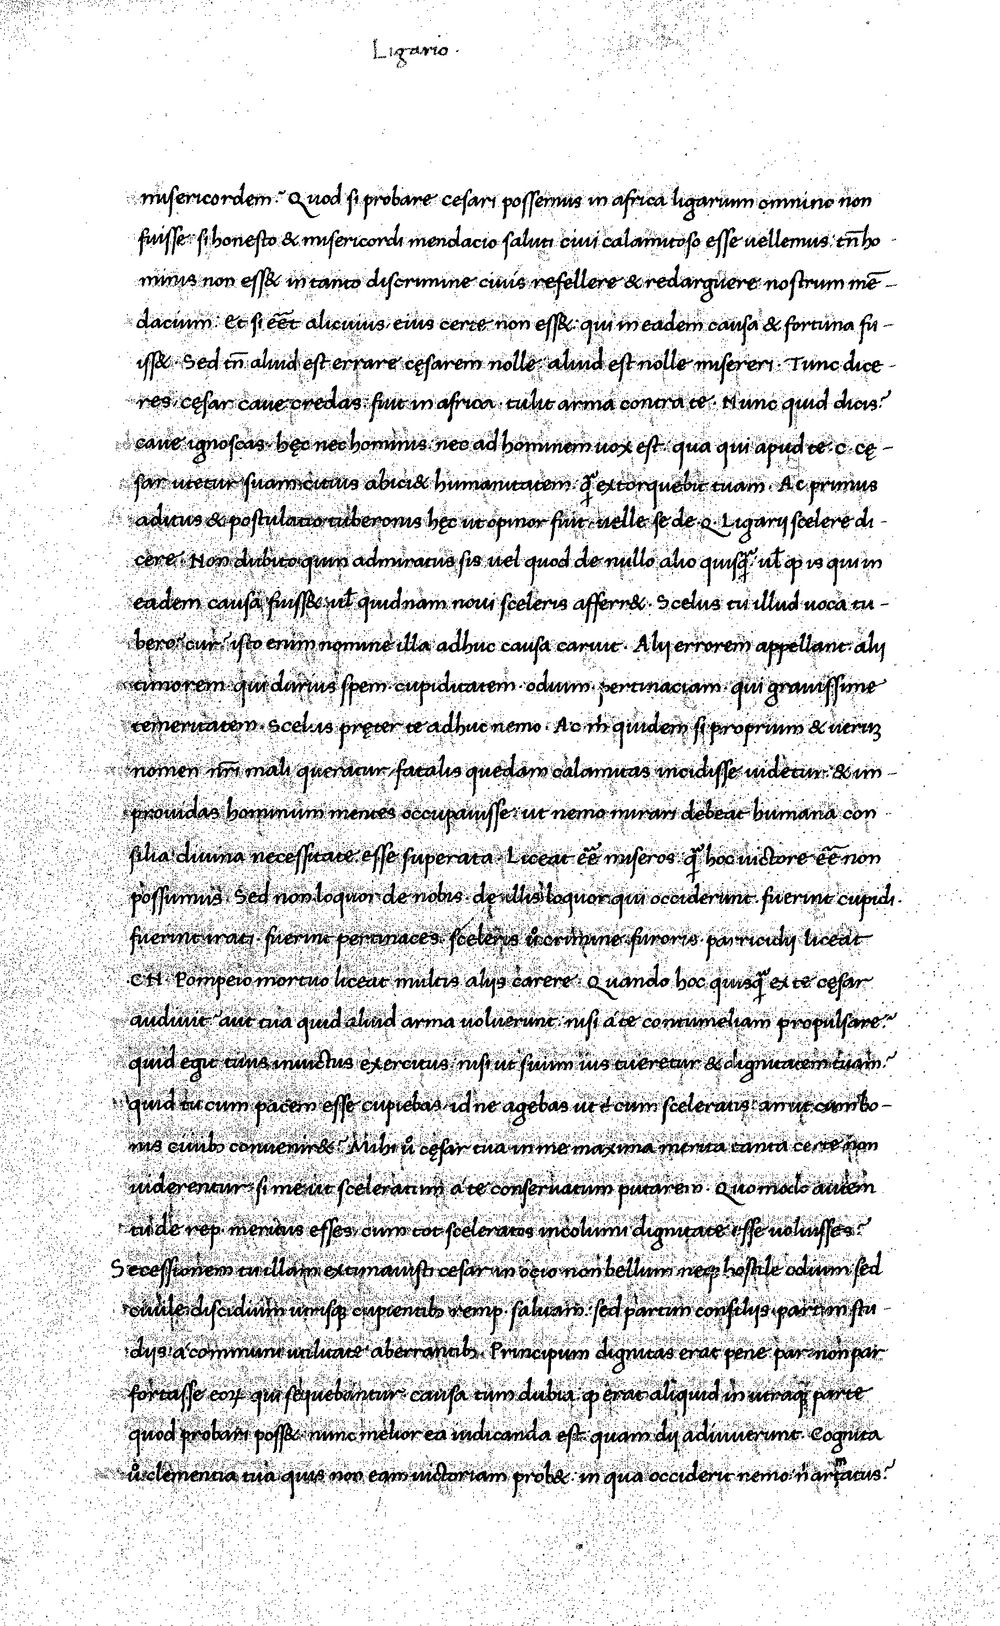 Ligario.
misericordem? Quod si probare cesari possemus in africa ligarium omnino non
fuisse. si honesto & misericordi mendacio saluti ciui calamitoso esse uellemus. tn̄ ho-
minis non ess& in tanto discrimine ciuis refellere & redarguere nostrum mē-
dacium. Et si eēt alicuius. eius certe non ess&. qui in eadem causa & fortuna fu-
iss&. Sed tn̄ aliud est errare cęsarem nolle. aliud est nolle misereri. Tunc dice-
res cęsar caue credas. fuit in africa. tulit arma contra te. Nunc quid dicis?
caue ignoscas. hęc nec hominis. nec ad hominem uox est. qua qui apud te .c. cę-
sar utetur suam citius abici& humanitatem q̄ extorquebit tuam. Ac primus
aditus & postulatio tuberonis hęc ut opinor fuit. uelle se de .Q. Ligarij scelere di-
cere. Non dubito quin admiratus sis uel quod de nullo alio quisq̄. ul̄ ꝙ is qui in
eadem causa fuiss& ul̄ quidnam noui sceleris afferr&. Scelus tu illud uoca tu-
bero? cur? isto enim nomine illa adhuc causa caruit. Alij errorem appellant. alij
timorem. qui durius spem. cupiditatem. odium. pertinaciam. qui grauissime
temeritatem. Scelus pręter te adhuc nemo. Ac m̄ quidem si proprium & uerūꝫ
nomen nr̄i mali queratur. fatalis quedam calamitas incidisse uidetur. & im-
prouidas hominum mentes occupauisse. ut nemo mirari debeat humana con
silia diuina necessitate esse superata. Liceat eē miseros. q̄ hoc uictore eē non
possumus. Sed non loquor de nobis. de illis loquor qui occiderunt. fuerint cupidi.
fuerint irati. fuerint pertinaces. sceleris u̇ crimine. furoris. parricidij liceat
.CN. Pompeio mortuo liceat multis alijs carere. Quando hoc quisq̄ ex te cęsar
audiuit? aut tua quid aliud arma uoluerunt. nisi a te contumeliam propulsare?
quid egit tuus inuictus exercitus. nisi ut suum ius tueretur & dignitatem tuam?
quid tu cum pacem esse cupiebas. id ne agebas ut t̄ cum sceleratis. an ut cum bo-
nis ciuibꝫ conuenir&? Mihi u̇ cęsar tua in me maxima merita tanta certe non
uiderentur. si me ut sceleratum a te conseruatum putarem. Quomodo autem
tu de rep. meritus esses. cum tot sceleratos incolumi dignitate esse uoluisses?
Secessionem tu illam existimauisti cesar in ocio non bellum neqꝫ hostile odium sed
ciuile discidium utrisqꝫ cupientibꝫ remp. saluam. sed partim consilijs. partim stu-
dijs a communi utilitate aberrantibꝫ. Principum dignitas erat pene par. non par
fortasse eoꝝ qui sequebantur. causa tum dubia. ꝙ erat aliquid in utraqꝫ parte
quod probari poss&. nunc melior ea iudicanda est. quam dij adiuuerunt. Cognita
u̇ clementia tua quis non eam uictoriam prob&. in qua occiderit nemo n̄ armatus?